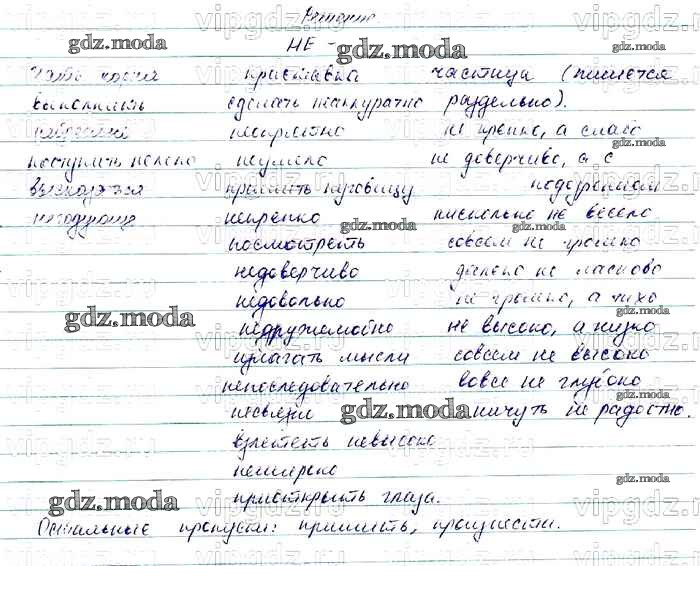 Решение
НЕ -
Часть корня приставка частица (пишется
выполнить сделать неаккуратно раздельно).
небрежно неопрятно не крепко, а слабо
поступить нелепо неумело не доверчиво, а с
высказался пришить пуговицу подозрением
негодующе некрепко нисколько не весело
посмотреть совсем не громко
недоверчиво далеко не ласково
недовольно не громко, а тихо
недружелюбно не высоко, а низко
излагать мысли совсем не высоко
непоследовательно вовсе не глубоко
несвязно ничуть не радостно.
взлететь невысоко
нешироко
приоткрыть глаза.
Остальные пропуски: пришить, произнести.
gdz.moda
vipgdz.ru